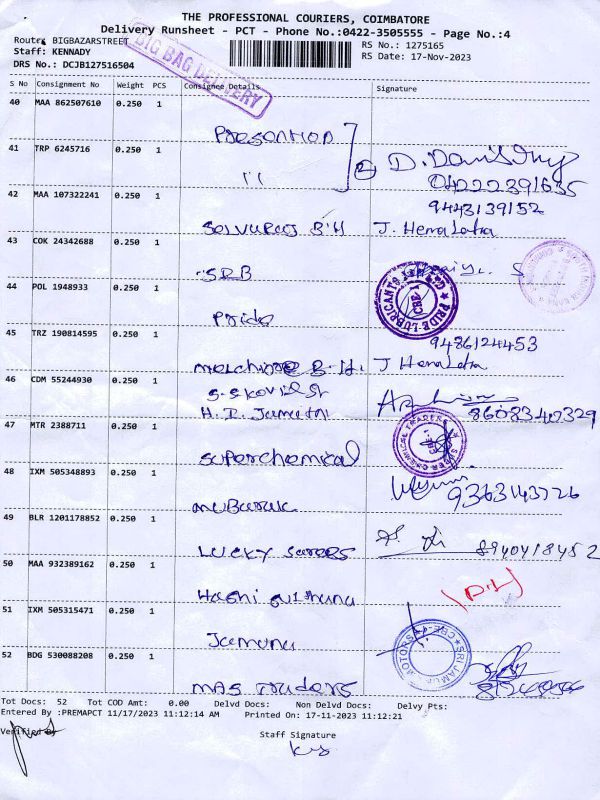 THE PROFESSIONAL COURIERS, COIMBATORE
Delivery Runsheet - PCT - Phone No.:0422-3505555 - Page No.:4
Route: BIGBAZARSTREET
Staff: KENNADY
DRS No.: DCJB127516504
BIG BAG DELIVERY
RS No.: 1275165
RS Date: 17-Nov-2023
S No Consignment No Weight PCS Consignee Details Signature
40 MAA 862507610 0.250 1
41 TRP 6245716 0.250 1 "
04222391635
42 MAA 107322241 0.250 1 Selvuraj B.H J. Hema Latha
9443139152
43 COK 24342688 0.250 1 SRB
44 POL 1948933 0.250 1 Pride
PRIDE LUBRICANTS CBE-1
45 TRZ 190814595 0.250 1 B.H. J Hema Latha
9486124453
46 CDM 55244930 0.250 1 S.S Kovil St
H. I. Jamuna
8608340329
47 MTR 2388711 0.250 1 Superchemical
SUPER CHEMICAL TRADERS
48 IXM 505348893 0.250 1 Mubarak
9363143726
49 BLR 1201178852 0.250 1 Lucky
8940418452
50 MAA 932389162 0.250 1
51 IXM 505315471 0.250 1 Jamuna
52 BDG 530088208 0.250 1 MAS Traders
Tot Docs: 52 Tot COD Amt: 0.00 Delvd Docs: Non Delvd Docs: Delvy Pts:
Entered By :PREMAPCT 11/17/2023 11:12:14 AM Printed On: 17-11-2023 11:12:21
Verified By
Staff Signature